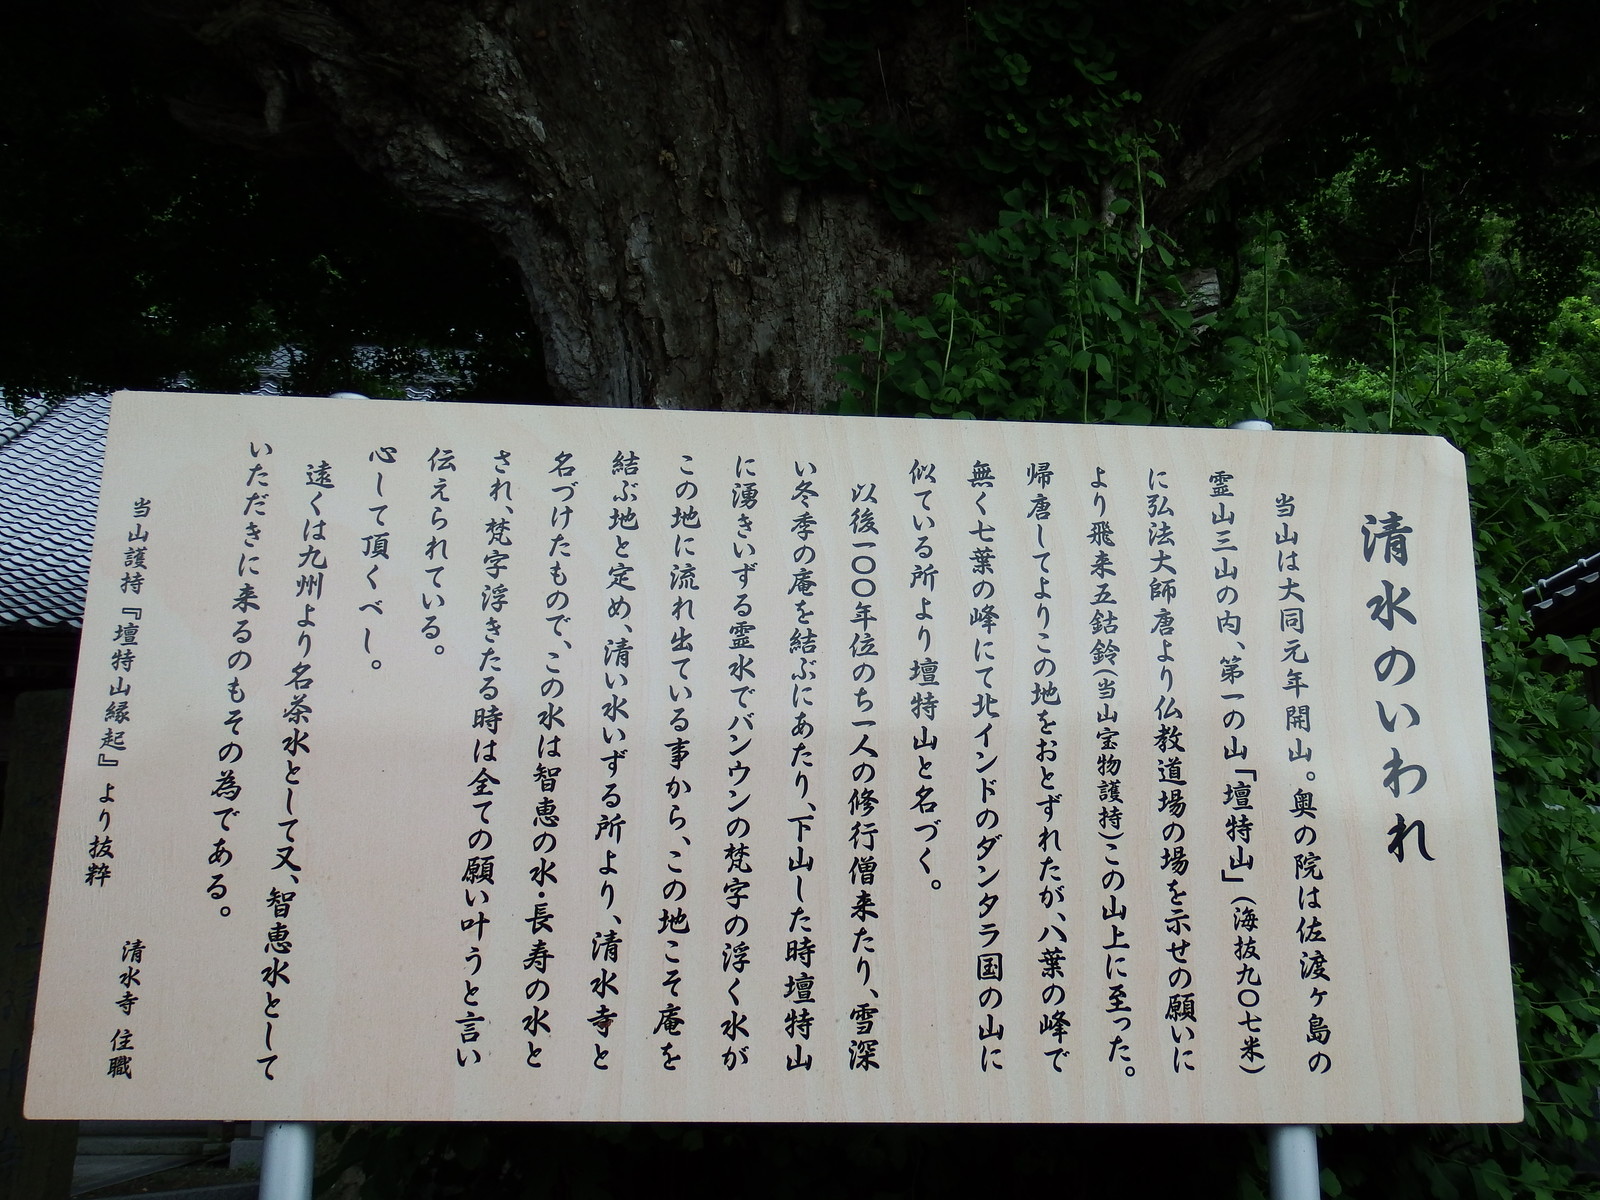 清水のいわれ
当山は大同元年開山。奥の院は佐渡ヶ島の
霊山三山の内、第一の山「壇特山」(海抜九〇七米)
に弘法大師唐より仏教道場の場を示せの願いに
より飛来五鈷鈴(当山宝物護持)この山上に至った。
帰唐してよりこの地をおとずれたが、八葉の峰で
無く七葉の峰にて北インドのダンタラ国の山に
似ている所より壇特山と名づく。
以後一〇〇年位のち一人の修行僧来たり、雪深
い冬季の庵を結ぶにあたり、下山した時壇特山
に湧きいずる霊水でバンウンの梵字の浮く水が
この地に流れ出ている事から、この地こそ庵を
結ぶ地と定め、清い水いずる所より、清水寺と
名づけたもので、この水は智恵の水・長寿の水と
され、梵字浮きたる時は全ての願い叶うと言い
伝えられている。
心して頂くべし。
遠くは九州より名茶水として又、智恵水として
いただきに来るのもその為である。
当山護持『壇特山縁起』より抜粋
清水寺 住職